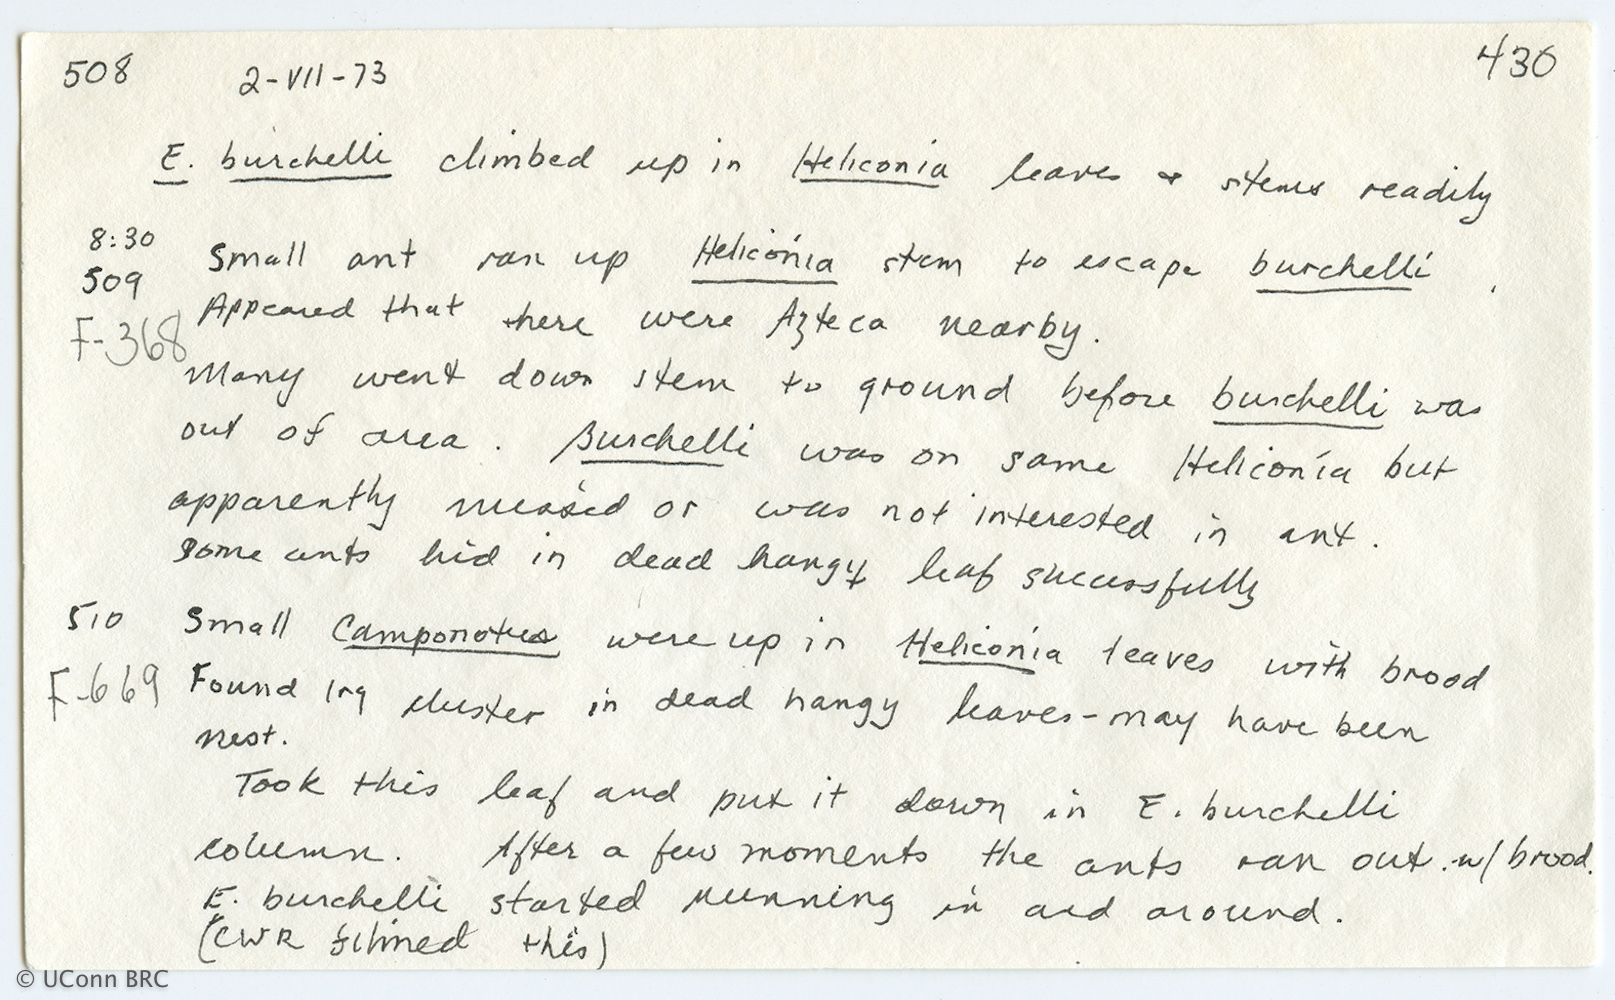 508 2-VII-73 430
E. burchelli climbed up in Heliconia leaves & stems readily
8:30
509 Small ant ran up Heliconia stem to escape burchelli.
F-368 Appeared that there were Azteca nearby.
Many went down stem to ground before burchelli was
out of area. Burchelli was on same Heliconia but
apparently missed or was not interested in ant.
Some ants hid in dead hangy leaf successfully
510 Small Camponotus were up in Heliconia leaves with brood
F-669 Found lrg cluster in dead hangy leaves - may have been
nest.
Took this leaf and put it down in E. burchelli
column. After a few moments the ants ran out w/ brood.
E. burchelli started running in and around.
(CWR filmed this)
© UConn BRC